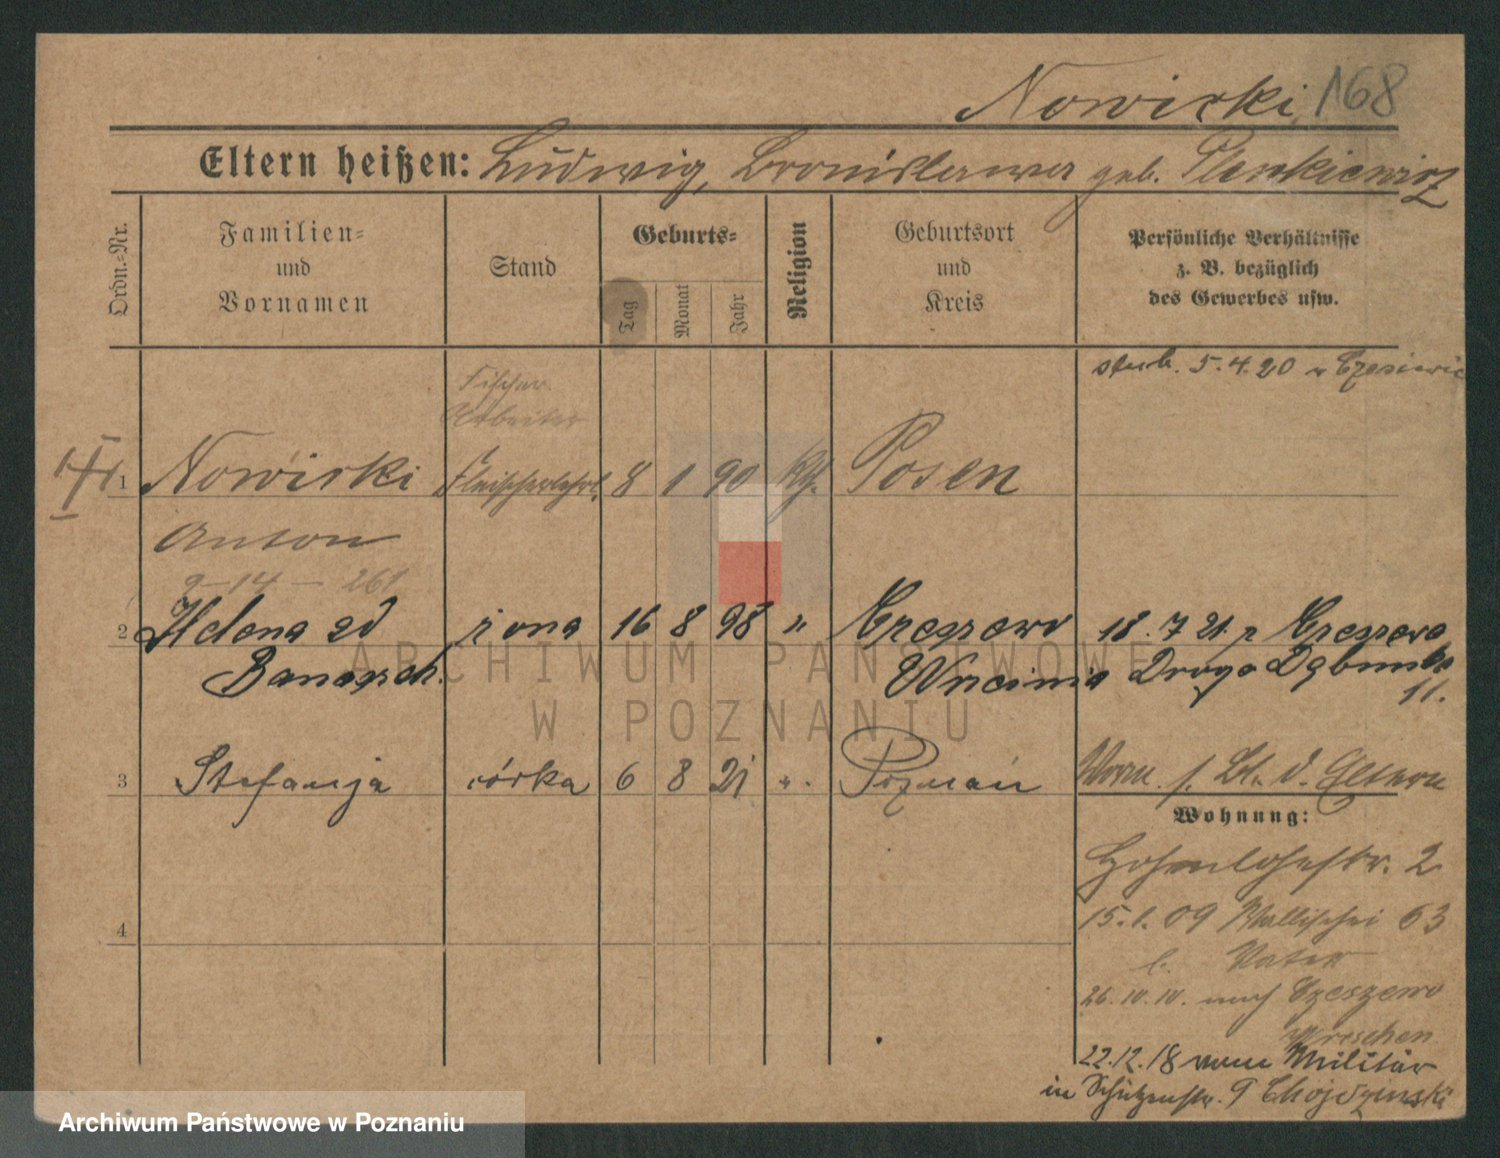 Nowicki 168
Eltern heißen: Ludwig, Bronisława geb. Plenkiewicz
Ordn.-Nr.
Familien-
und
Vornamen
Stand
Geburts-
Tag
Monat
Jahr
Religion
Geburtsort
und
Kreis
Persönliche Verhältnisse
z. B. bezüglich
des Gewerbes usw.
ślub. 5.4.20 w
Fischer
Arbeiter
1 Nowicki Fleischerlehrl. 8 1 90 Kth. Posen
Anton
9-14- 261
2 Helena zd żona 16 8 98 " 18.7 21. z
Banaszak.
Droga Dębińska
11.
3 Stefanja córka 6 8 21 ". Poznań
d. Eltern
Wohnung:
Hohenlohestr. 2
15.1.09 Wallischei 63
b. Vater
4
26.10.10. nach Czeszewo
Wreschen
22.12.18 vom Militär
in Schützenstr. 9
ARCHIWUM PAŃSTWOWE
W POZNANIU
Archiwum Państwowe w Poznaniu